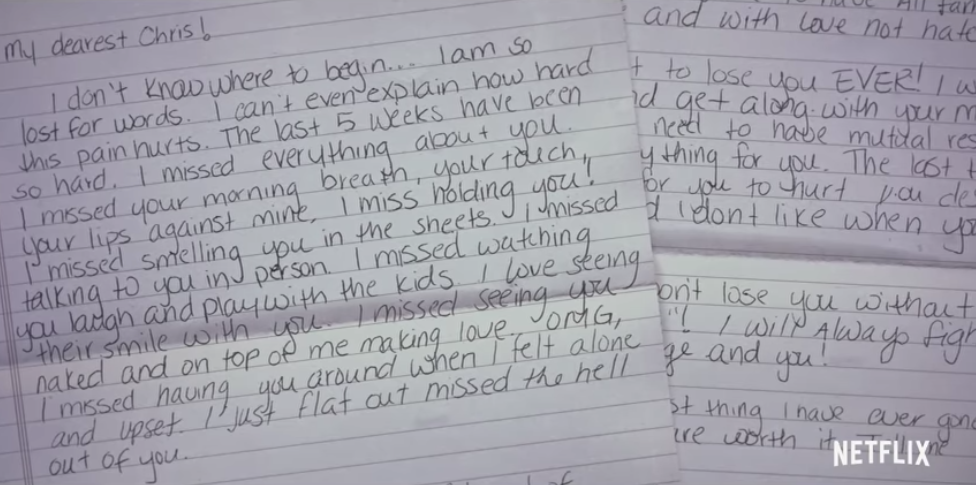 My dearest Chris!
I don't know where to begin... I am so
lost for words. I can't even explain how hard
this pain hurts. The last 5 weeks have been
so hard. I missed everything about you.
I missed your morning breath, your touch,
your lips against mine, I miss holding you!
I missed smelling you in the sheets. I missed
talking to you in person. I missed watching
you laugh and play with the kids. I love seeing
their smile with you. I missed seeing you
naked and on top of me making love. OMG,
I missed having you around when I felt alone
and upset. I just flat out missed the hell
out of you.
and with love not hate
to lose you EVER! I
get along with your
need to have mutual res
ything for you. The last
for you to hurt you
I dont like when
on't lose you without
! I will Always fig
ge and you!
st thing I have ever gon
are worth it.
NETFLIX